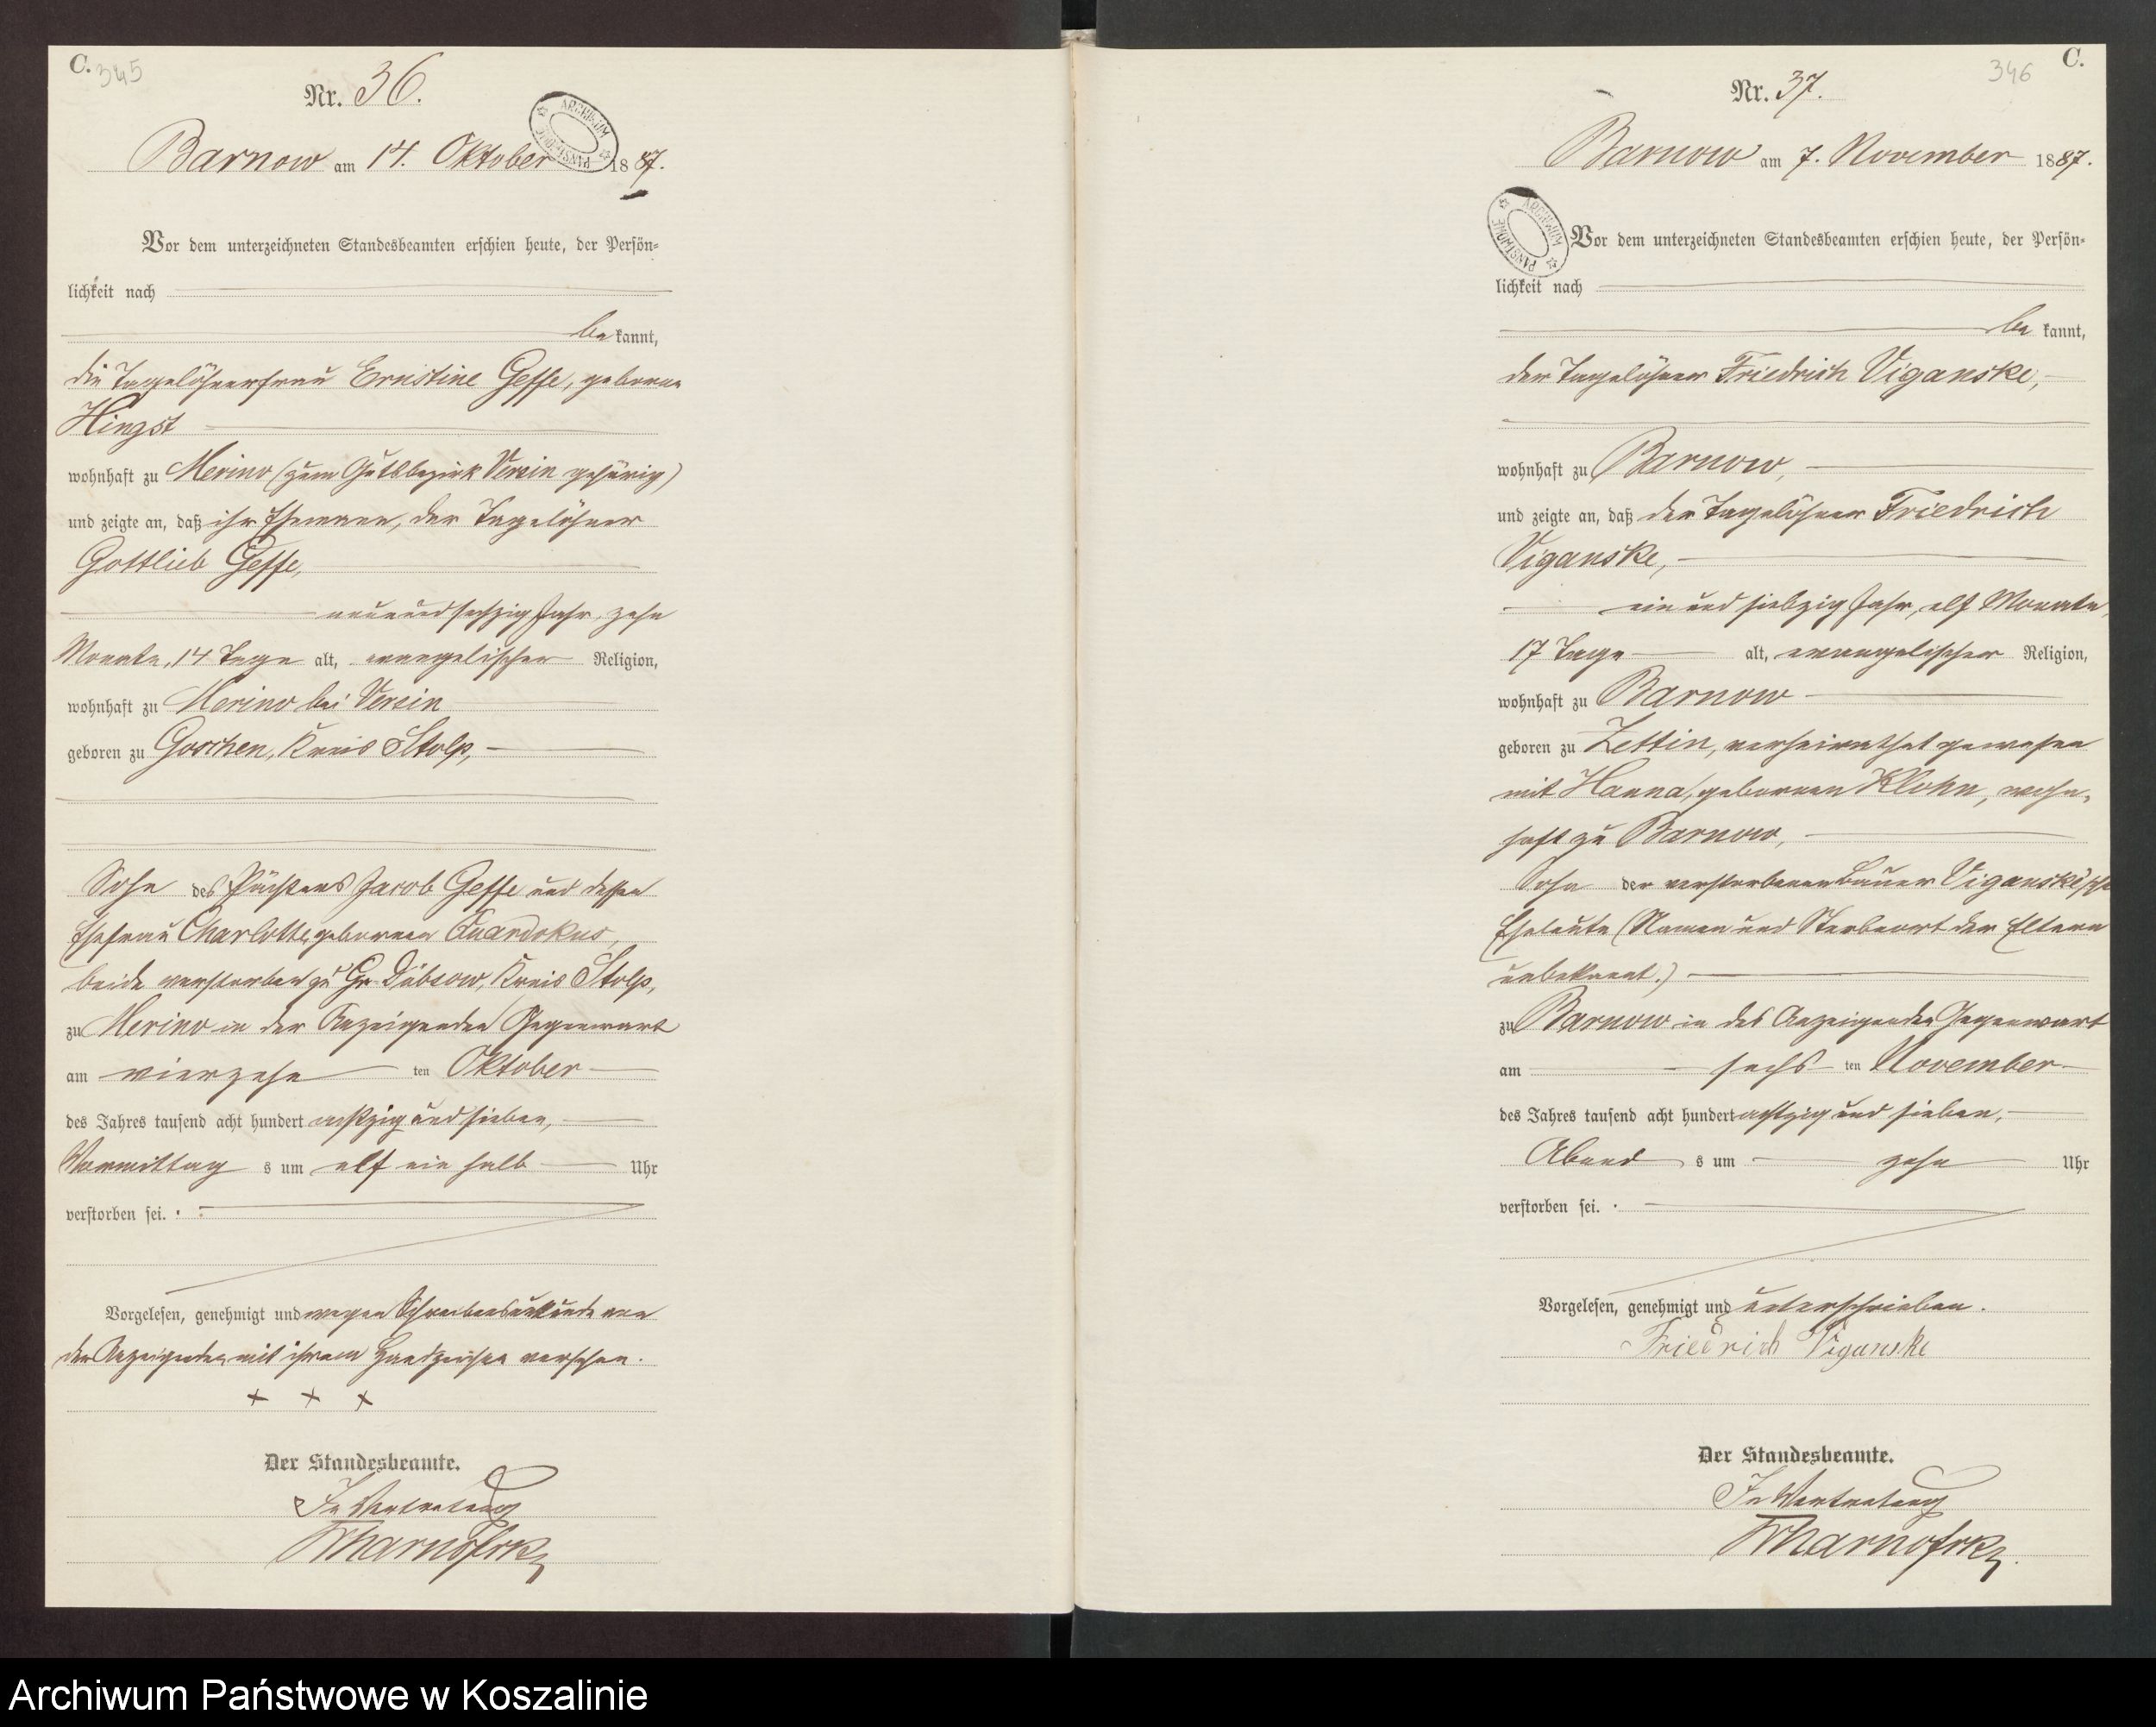 C. 345
Nr. 36.
ARCHIWUM PAŃSTWOWE
Barnow am 14. Oktober 1887.
Vor dem unterzeichneten Standesbeamten erschien heute, der Persön-
lichkeit nach
be kannt,
die Tagelöhnerfrau Ernstine Geffe, geborene
Hingst
wohnhaft zu Merino (zum Gutsbezirk Versin gehörig)
und zeigte an, daß ihr Ehemann, der Tagelöhner
Gottlieb Geffe,
neunundsechzig Jahr, zehn
Monate, 14 Tage alt, evangelischer Religion,
wohnhaft zu Merino bei Versin
geboren zu Goschen, Kreis Stolp,
Sohn des Jacob Geffe und dessen
Ehefrau Charlotte, geborenen Quandokus,
beide verstorben zu Gr. Dübsow, Kreis Stolp,
zu Merino in der Anzeigenden Gegenwart
am vierzehn ten Oktober
des Jahres tausend acht hundert achtzig und sieben,
Vormittag s um elf ein halb Uhr
verstorben sei.
Vorgelesen, genehmigt und wegen Schreibensunkunde von
der Anzeigenden mit ihrem Handzeichen versehen.
+ + +
Der Standesbeamte.
In Vertretung
C.
346
Nr. 37.
Barnow am 7. November 1887.
ARCHIWUM PAŃSTWOWE
Vor dem unterzeichneten Standesbeamten erschien heute, der Persön-
lichkeit nach
be kannt,
der Tagelöhner Friedrich Viganske,
wohnhaft zu Barnow,
und zeigte an, daß der Tagelöhner Friedrich
Viganske,
ein und siebzig Jahr, elf Monate,
17 Tage alt, evangelischer Religion,
wohnhaft zu Barnow
geboren zu Zettin, verheirathet gewesen
mit Hanna, geborenen Klohn, wohn-
haft zu Barnow,
Sohn der verstorbenen Bauer Viganske'schen
Eheleute (Namen und Sterbeort der Eltern
unbekannt.)
zu Barnow in des Anzeigenden Gegenwart
am sechs ten November
des Jahres tausend acht hundert achtzig und sieben,
Abend s um zehn Uhr
verstorben sei.
Vorgelesen, genehmigt und unterschrieben.
Friedrich Viganske
Der Standesbeamte.
In Vertretung
Archiwum Państwowe w Koszalinie